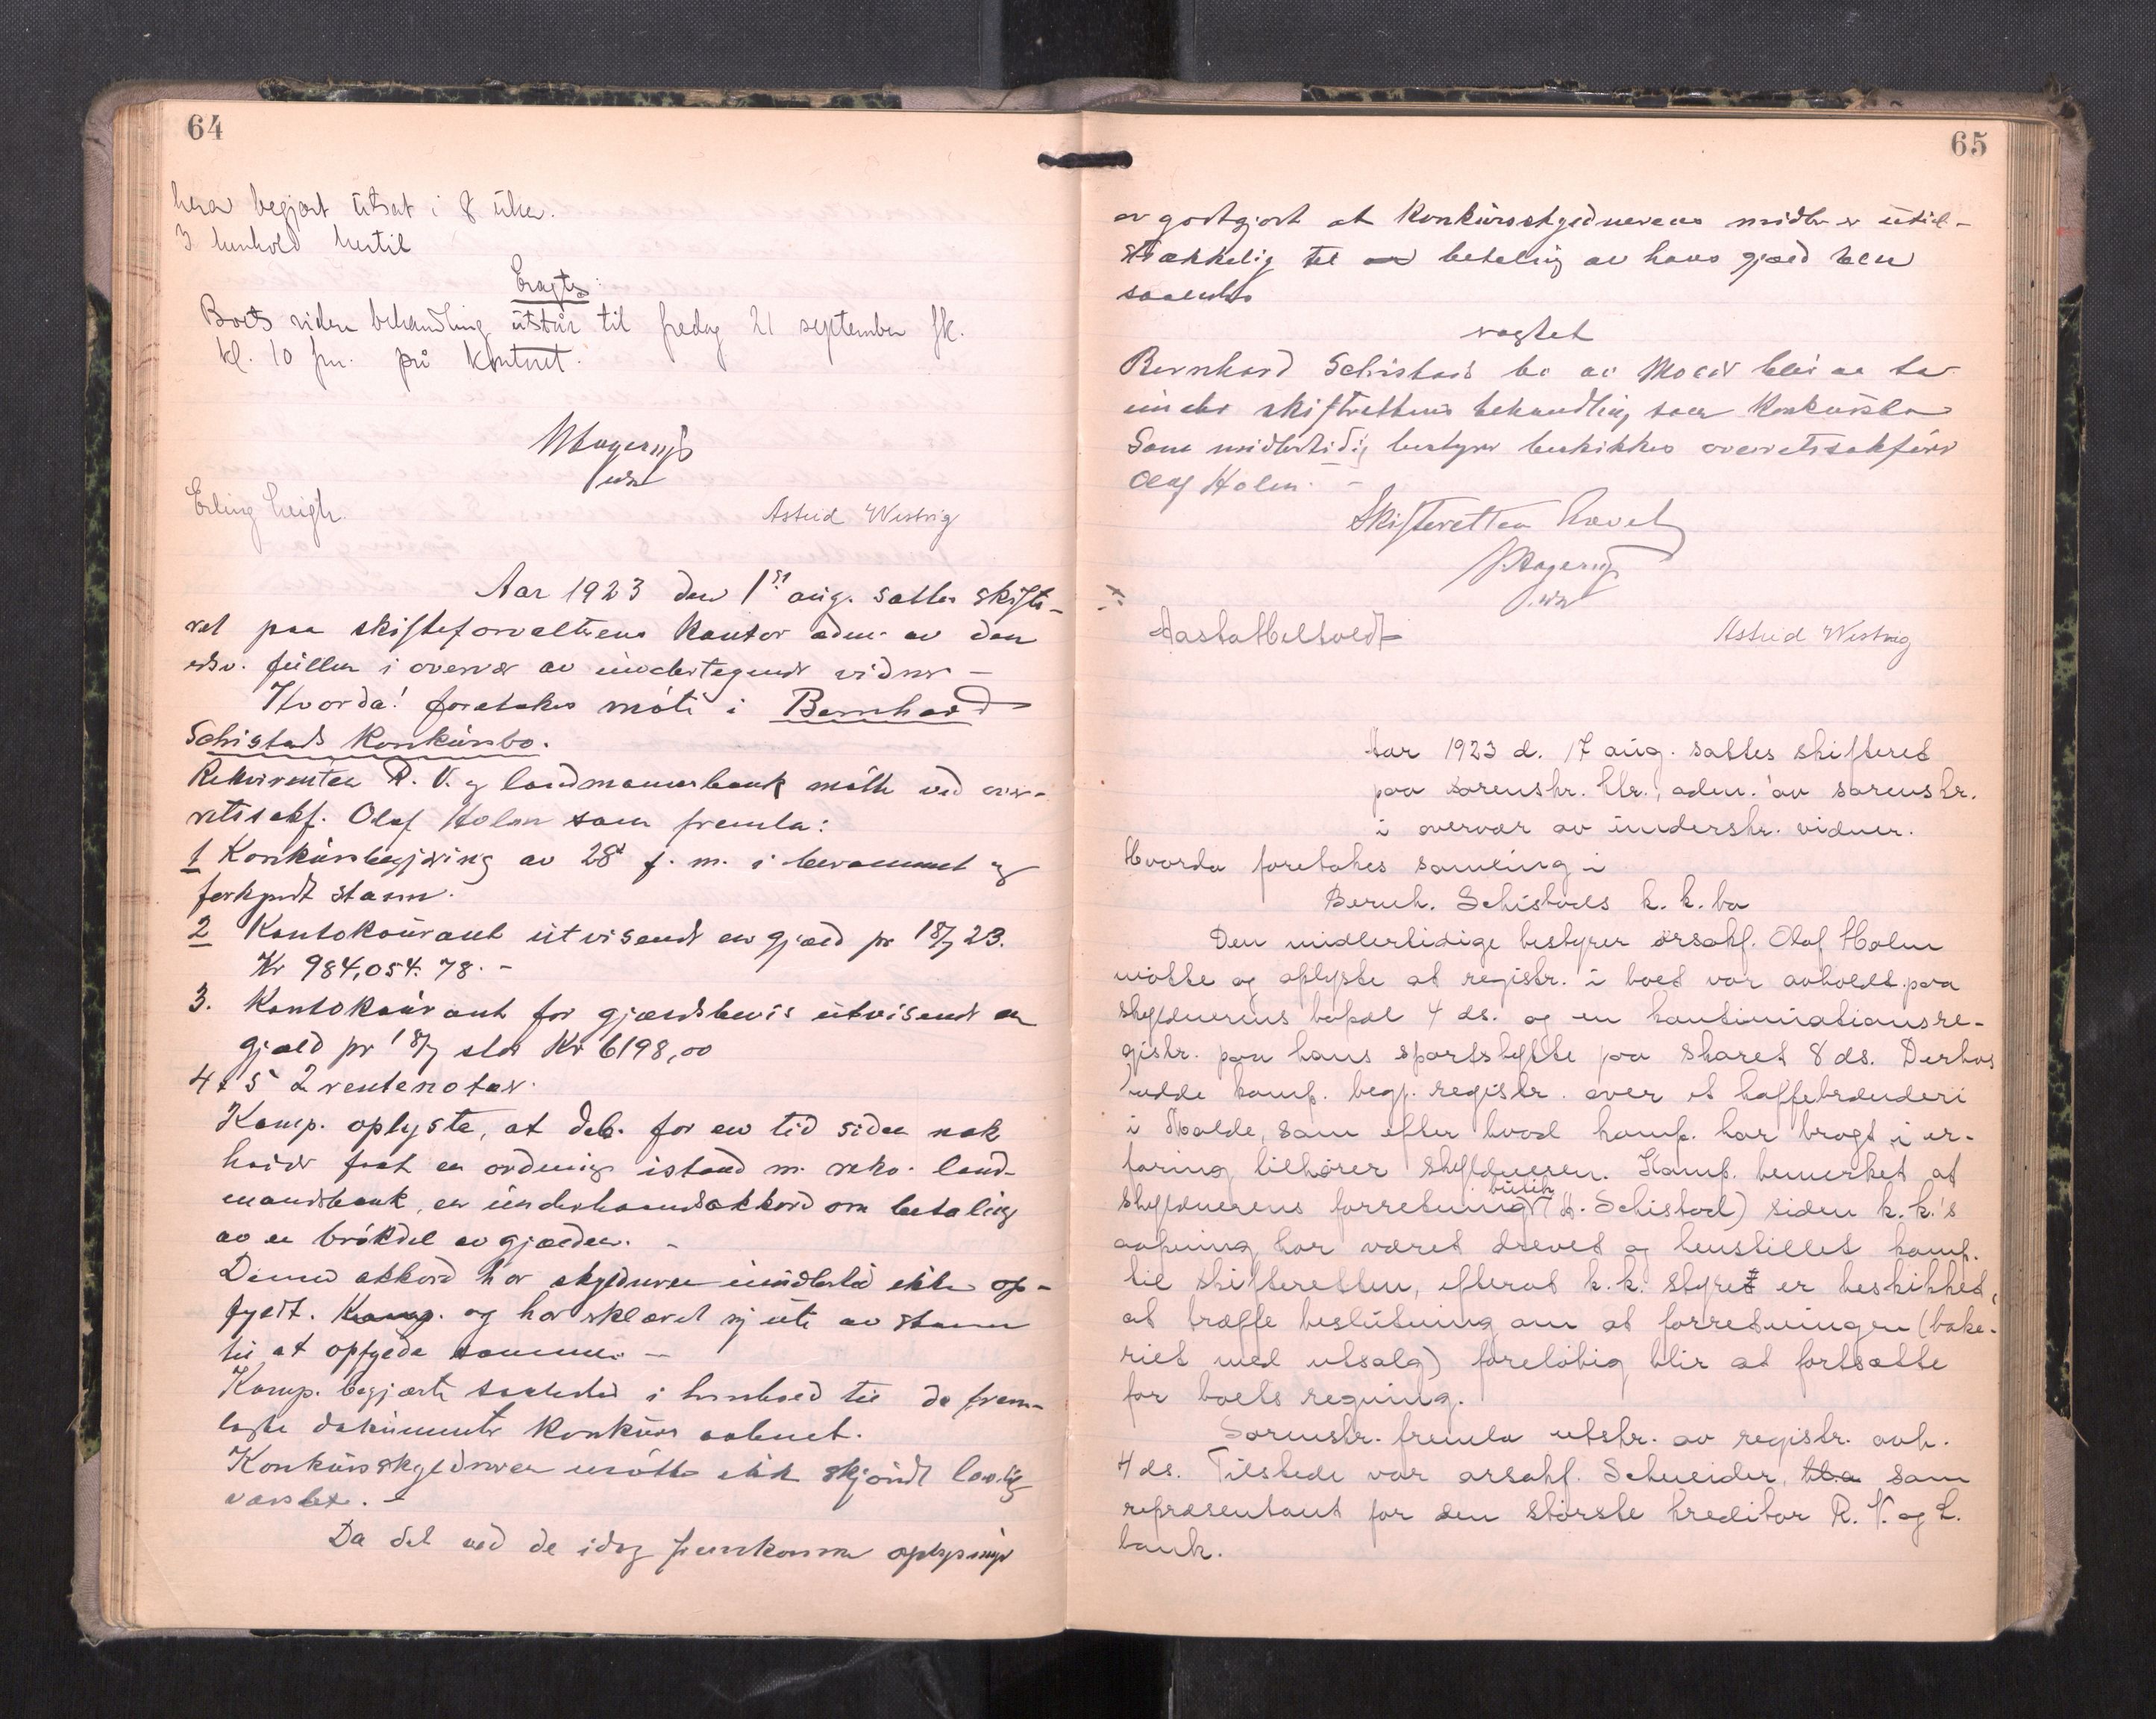 64
herav begjært utsat i 8 uker.
I henhold hertil
Eragtes:
Boets videre behandling utstår til fredag 21 september fk.
kl. 10 fm. på kontoret.
Erling
Astrid Westvig
Aar 1923 den 1st aug. sattes skifte-
ret paa skifteforvalterens kontor adm. av den
edsv. fullm i overvær av undertegnede vidner –
Hvorda! foretokes møte i Bernhard
Schistads konkursbo.
Rekvirenten R. V. og landmannsbank møtte ved over-
retssakf. Olaf Holm som fremla:
1 Konkursbegjæring av 28d f. m. i berammet og
forkyndt stann.
2 Kontokourant utvisende en gjæld pr 18/7 23.
Kr 984,054.78. –
3. Kontokourant for gjældsbevis utvisende en
gjæld pr 18/7 stor Kr 6198,00
4 & 5 2 rentenotaer.
Komp. oplyste, at deb. for en tid siden nok
hadde faat en ordning istand m. rekv. land-
mandsbank, en underhaandsakkord om betaling
av en brøkdel av gjælden. –
Denne akkord har skyldneren imidlertid ikke op-
fyldt. Komp. og har erklæret sig ute av stann
til at opfylde samme. –
Komp. begjærte saaledes i henhold til de frem-
lagte dokumenter konkurs aabnet.
Konkursskyldneren møtte ikke skjøndt lovlig
varslet. –
Da det ved de idag fremkomne oplysninger
65
er godtgjort at konkursskyldnerens midler er util-
strækkelig til betaling av hans gjæld blev
saaledes
vagtet
Bernhard Schistads bo av Molde blir at ta
under skifterettens behandling som konkursbo
Som midlertidig bestyrer beskikkes overretssakfører
Olaf Holm. –
Skifteretten hævet
Aasta Heltvedt
Astrid Westvig
Aar 1923 d. 17 aug. sattes skifteret
paa sorenskr. ktr., adm. av sorenskr.
i overvær av underskr. vidner.
Hvorda foretokes samling i
Bernh. Schistads k. k. bo
Den midlertidige bestyrer orsakf. Olaf Holm
møtte og oplyste at registr. i boet var avholdt paa
skyldnerens bopæl 4 ds. og en kontinuationsre-
gistr. paa hans sportshytte paa Skaret 8 ds. Derhos
hadde komp. begj. registr. over et kaffebrænderi
i Molde, som efter hvad komp. har bragt i er-
faring, tilhører skyldneren. Komp. bemerket at
skyldnerens forretning (H. Schistad) siden k.k.'s
butik
aapning har været drevet og henstillet komp.
til skifteretten, efterat k.k. styret er beskikket,
at træffe beslutning om at forretningen (bake-
riet med utsalg) foreløbig blir at fortsætte
for boets regning.
Sorenskr. fremla utskr. av registr. avh.
4 ds. Tilstede var orsakf. Schneider, som
repræsentant for den største kreditor R. V. og L.
bank.